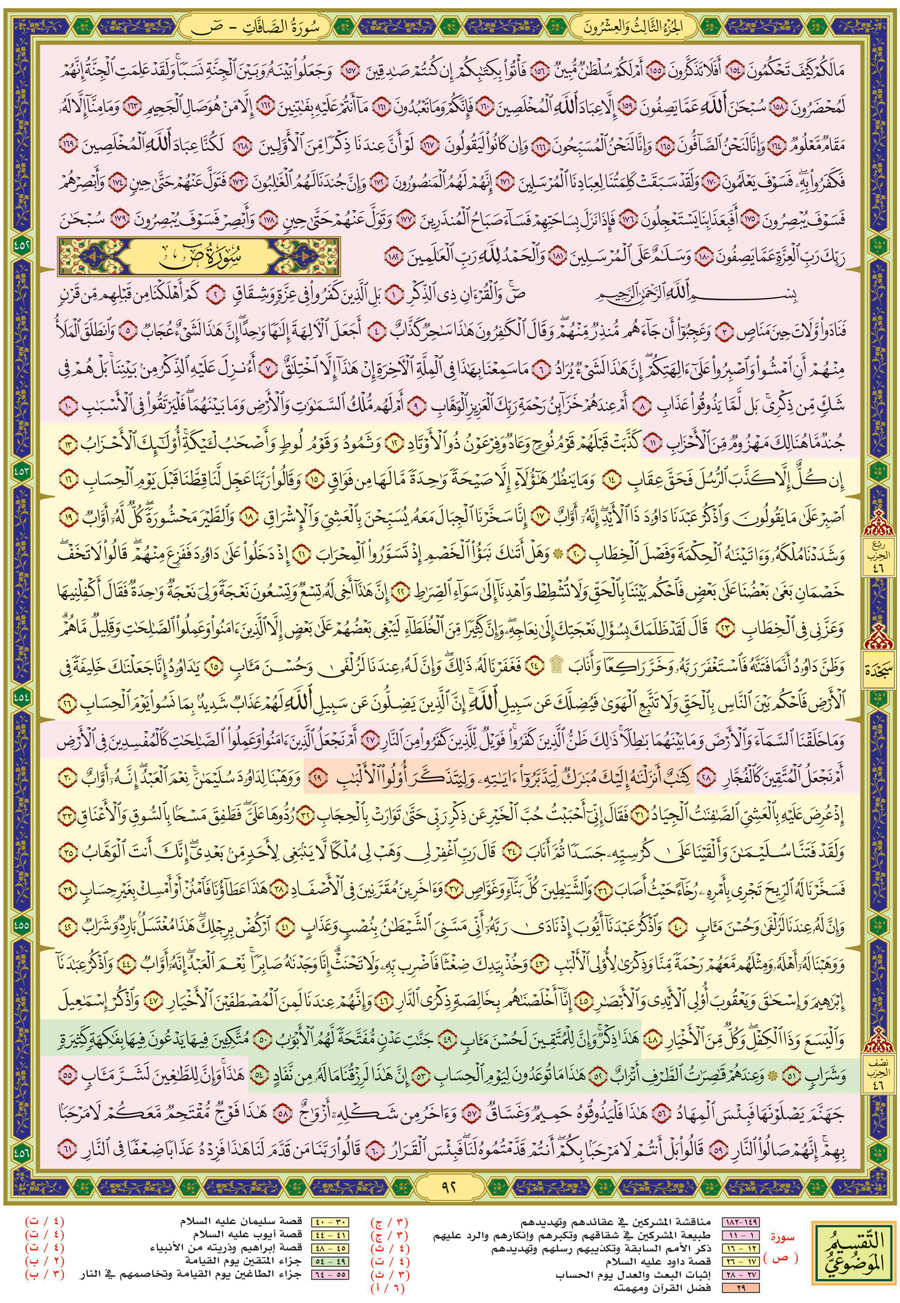 الجزء الثالث والعشرون
سورة الصافات - ص
مَا لَكُمْ كَيْفَ تَحْكُمُونَ ١٥٤ أَفَلَا تَذَكَّرُونَ ١٥٥ أَمْ لَكُمْ سُلْطَٰنٌ مُّبِينٌ ١٥٦ فَأْتُوا۟ بِكِتَٰبِكُمْ إِن كُنتُمْ صَٰدِقِينَ ١٥٧ وَجَعَلُوا۟ بَيْنَهُۥ وَبَيْنَ ٱلْجِنَّةِ نَسَبًا ۚ وَلَقَدْ عَلِمَتِ ٱلْجِنَّةُ إِنَّهُمْ
لَمُحْضَرُونَ ١٥٨ سُبْحَٰنَ ٱللَّهِ عَمَّا يَصِفُونَ ١٥٩ إِلَّا عِبَادَ ٱللَّهِ ٱلْمُخْلَصِينَ ١٦٠ فَإِنَّكُمْ وَمَا تَعْبُدُونَ ١٦١ مَآ أَنتُمْ عَلَيْهِ بِفَٰتِنِينَ ١٦٢ إِلَّا مَنْ هُوَ صَالِ ٱلْجَحِيمِ ١٦٣ وَمَا مِنَّآ إِلَّا لَهُۥ
مَقَامٌ مَّعْلُومٌ ١٦٤ وَإِنَّا لَنَحْنُ ٱلصَّآفُّونَ ١٦٥ وَإِنَّا لَنَحْنُ ٱلْمُسَبِّحُونَ ١٦٦ وَإِن كَانُوا۟ لَيَقُولُونَ ١٦٧ لَوْ أَنَّ عِندَنَا ذِكْرًا مِّنَ ٱلْأَوَّلِينَ ١٦٨ لَكُنَّا عِبَادَ ٱللَّهِ ٱلْمُخْلَصِينَ ١٦٩
فَكَفَرُوا۟ بِهِۦ ۖ فَسَوْفَ يَعْلَمُونَ ١٧٠ وَلَقَدْ سَبَقَتْ كَلِمَتُنَا لِعِبَادِنَا ٱلْمُرْسَلِينَ ١٧١ إِنَّهُمْ لَهُمُ ٱلْمَنصُورُونَ ١٧٢ وَإِنَّ جُندَنَا لَهُمُ ٱلْغَٰلِبُونَ ١٧٣ فَتَوَلَّ عَنْهُمْ حَتَّىٰ حِينٍ ١٧٤ وَأَبْصِرْهُمْ
فَسَوْفَ يُبْصِرُونَ ١٧٥ أَفَبِعَذَابِنَا يَسْتَعْجِلُونَ ١٧٦ فَإِذَا نَزَلَ بِسَاحَتِهِمْ فَسَآءَ صَبَاحُ ٱلْمُنذَرِينَ ١٧٧ وَتَوَلَّ عَنْهُمْ حَتَّىٰ حِينٍ ١٧٨ وَأَبْصِرْ فَسَوْفَ يُبْصِرُونَ ١٧٩ سُبْحَٰنَ
رَبِّكَ رَبِّ ٱلْعِزَّةِ عَمَّا يَصِفُونَ ١٨٠ وَسَلَٰمٌ عَلَى ٱلْمُرْسَلِينَ ١٨١ وَٱلْحَمْدُ لِلَّهِ رَبِّ ٱلْعَٰلَمِينَ ١٨٢ سُورَةُ صٓ
بِسْمِ ٱللَّهِ ٱلرَّحْمَٰنِ ٱلرَّحِيمِ صٓ ۚ وَٱلْقُرْءَانِ ذِى ٱلذِّكْرِ ١ بَلِ ٱلَّذِينَ كَفَرُوا۟ فِى عِزَّةٍ وَشِقَاقٍ ٢ كَمْ أَهْلَكْنَا مِن قَبْلِهِم مِّن قَرْنٍ
فَنَادَوا۟ وَّلَاتَ حِينَ مَنَاصٍ ٣ وَعَجِبُوٓا۟ أَن جَآءَهُم مُّنذِرٌ مِّنْهُمْ ۖ وَقَالَ ٱلْكَٰفِرُونَ هَٰذَا سَٰحِرٌ كَذَّابٌ ٤ أَجَعَلَ ٱلْءَالِهَةَ إِلَٰهًا وَٰحِدًا ۖ إِنَّ هَٰذَا لَشَىْءٌ عُجَابٌ ٥ وَٱنطَلَقَ ٱلْمَلَأُ
مِنْهُمْ أَنِ ٱمْشُوا۟ وَٱصْبِرُوا۟ عَلَىٰٓ ءَالِهَتِكُمْ ۖ إِنَّ هَٰذَا لَشَىْءٌ يُرَادُ ٦ مَا سَمِعْنَا بِهَٰذَا فِى ٱلْمِلَّةِ ٱلْءَاخِرَةِ إِنْ هَٰذَآ إِلَّا ٱخْتِلَٰقٌ ٧ أَءُنزِلَ عَلَيْهِ ٱلذِّكْرُ مِنۢ بَيْنِنَا ۚ بَلْ هُمْ فِى
شَكٍّ مِّن ذِكْرِى ۖ بَل لَّمَّا يَذُوقُوا۟ عَذَابِ ٨ أَمْ عِندَهُمْ خَزَآئِنُ رَحْمَةِ رَبِّكَ ٱلْعَزِيزِ ٱلْوَهَّابِ ٩ أَمْ لَهُم مُّلْكُ ٱلسَّمَٰوَٰتِ وَٱلْأَرْضِ وَمَا بَيْنَهُمَا ۖ فَلْيَرْتَقُوا۟ فِى ٱلْأَسْبَٰبِ ١٠
جُندٌ مَّا هُنَالِكَ مَهْزُومٌ مِّنَ ٱلْأَحْزَابِ ١١ كَذَّبَتْ قَبْلَهُمْ قَوْمُ نُوحٍ وَعَادٌ وَفِرْعَوْنُ ذُو ٱلْأَوْتَادِ ١٢ وَثَمُودُ وَقَوْمُ لُوطٍ وَأَصْحَٰبُ لْـَٔيْكَةِ ۚ أُو۟لَٰٓئِكَ ٱلْأَحْزَابُ ١٣
إِن كُلٌّ إِلَّا كَذَّبَ ٱلرُّسُلَ فَحَقَّ عِقَابِ ١٤ وَمَا يَنظُرُ هَٰٓؤُلَآءِ إِلَّا صَيْحَةً وَٰحِدَةً مَّا لَهَا مِن فَوَاقٍ ١٥ وَقَالُوا۟ رَبَّنَا عَجِّل لَّنَا قِطَّنَا قَبْلَ يَوْمِ ٱلْحِسَابِ ١٦
ٱصْبِرْ عَلَىٰ مَا يَقُولُونَ وَٱذْكُرْ عَبْدَنَا دَاوُۥدَ ذَا ٱلْأَيْدِ ۖ إِنَّهُۥٓ أَوَّابٌ ١٧ إِنَّا سَخَّرْنَا ٱلْجِبَالَ مَعَهُۥ يُسَبِّحْنَ بِٱلْعَشِىِّ وَٱلْإِشْرَاقِ ١٨ وَٱلطَّيْرَ مَحْشُورَةً ۖ كُلٌّ لَّهُۥٓ أَوَّابٌ ١٩
وَشَدَدْنَا مُلْكَهُۥ وَءَاتَيْنَٰهُ ٱلْحِكْمَةَ وَفَصْلَ ٱلْخِطَابِ ٢٠ ۞ وَهَلْ أَتَىٰكَ نَبَؤُا۟ ٱلْخَصْمِ إِذْ تَسَوَّرُوا۟ ٱلْمِحْرَابَ ٢١ إِذْ دَخَلُوا۟ عَلَىٰ دَاوُۥدَ فَفَزِعَ مِنْهُمْ ۖ قَالُوا۟ لَا تَخَفْ ۖ
خَصْمَانِ بَغَىٰ بَعْضُنَا عَلَىٰ بَعْضٍ فَٱحْكُم بَيْنَنَا بِٱلْحَقِّ وَلَا تُشْطِطْ وَٱهْدِنَآ إِلَىٰ سَوَآءِ ٱلصِّرَٰطِ ٢٢ إِنَّ هَٰذَآ أَخِى لَهُۥ تِسْعٌ وَتِسْعُونَ نَعْجَةً وَلِىَ نَعْجَةٌ وَٰحِدَةٌ فَقَالَ أَكْفِلْنِيهَا
وَعَزَّنِى فِى ٱلْخِطَابِ ٢٣ قَالَ لَقَدْ ظَلَمَكَ بِسُؤَالِ نَعْجَتِكَ إِلَىٰ نِعَاجِهِۦ ۖ وَإِنَّ كَثِيرًا مِّنَ ٱلْخُلَطَآءِ لَيَبْغِى بَعْضُهُمْ عَلَىٰ بَعْضٍ إِلَّا ٱلَّذِينَ ءَامَنُوا۟ وَعَمِلُوا۟ ٱلصَّٰلِحَٰتِ وَقَلِيلٌ مَّا هُمْ ۗ
وَظَنَّ دَاوُۥدُ أَنَّمَا فَتَنَّٰهُ فَٱسْتَغْفَرَ رَبَّهُۥ وَخَرَّ رَاكِعًا وَأَنَابَ ۩ ٢٤ فَغَفَرْنَا لَهُۥ ذَٰلِكَ ۖ وَإِنَّ لَهُۥ عِندَنَا لَزُلْفَىٰ وَحُسْنَ مَـَٔابٍ ٢٥ يَٰدَاوُۥدُ إِنَّا جَعَلْنَٰكَ خَلِيفَةً فِى
ٱلْأَرْضِ فَٱحْكُم بَيْنَ ٱلنَّاسِ بِٱلْحَقِّ وَلَا تَتَّبِعِ ٱلْهَوَىٰ فَيُضِلَّكَ عَن سَبِيلِ ٱللَّهِ ۚ إِنَّ ٱلَّذِينَ يَضِلُّونَ عَن سَبِيلِ ٱللَّهِ لَهُمْ عَذَابٌ شَدِيدٌۢ بِمَا نَسُوا۟ يَوْمَ ٱلْحِسَابِ ٢٦
وَمَا خَلَقْنَا ٱلسَّمَآءَ وَٱلْأَرْضَ وَمَا بَيْنَهُمَا بَٰطِلًا ۚ ذَٰلِكَ ظَنُّ ٱلَّذِينَ كَفَرُوا۟ ۚ فَوَيْلٌ لِّلَّذِينَ كَفَرُوا۟ مِنَ ٱلنَّارِ ٢٧ أَمْ نَجْعَلُ ٱلَّذِينَ ءَامَنُوا۟ وَعَمِلُوا۟ ٱلصَّٰلِحَٰتِ كَٱلْمُفْسِدِينَ فِى ٱلْأَرْضِ
أَمْ نَجْعَلُ ٱلْمُتَّقِينَ كَٱلْفُجَّارِ ٢٨ كِتَٰبٌ أَنزَلْنَٰهُ إِلَيْكَ مُبَٰرَكٌ لِّيَدَّبَّرُوٓا۟ ءَايَٰتِهِۦ وَلِيَتَذَكَّرَ أُو۟لُوا۟ ٱلْأَلْبَٰبِ ٢٩ وَوَهَبْنَا لِدَاوُۥدَ سُلَيْمَٰنَ ۚ نِعْمَ ٱلْعَبْدُ ۖ إِنَّهُۥٓ أَوَّابٌ ٣٠
إِذْ عُرِضَ عَلَيْهِ بِٱلْعَشِىِّ ٱلصَّٰفِنَٰتُ ٱلْجِيَادُ ٣١ فَقَالَ إِنِّىٓ أَحْبَبْتُ حُبَّ ٱلْخَيْرِ عَن ذِكْرِ رَبِّى حَتَّىٰ تَوَارَتْ بِٱلْحِجَابِ ٣٢ رُدُّوهَا عَلَىَّ ۖ فَطَفِقَ مَسْحًۢا بِٱلسُّوقِ وَٱلْأَعْنَاقِ ٣٣
وَلَقَدْ فَتَنَّا سُلَيْمَٰنَ وَأَلْقَيْنَا عَلَىٰ كُرْسِيِّهِۦ جَسَدًا ثُمَّ أَنَابَ ٣٤ قَالَ رَبِّ ٱغْفِرْ لِى وَهَبْ لِى مُلْكًا لَّا يَنۢبَغِى لِأَحَدٍ مِّنۢ بَعْدِىٓ ۖ إِنَّكَ أَنتَ ٱلْوَهَّابُ ٣٥
فَسَخَّرْنَا لَهُ ٱلرِّيحَ تَجْرِى بِأَمْرِهِۦ رُخَآءً حَيْثُ أَصَابَ ٣٦ وَٱلشَّيَٰطِينَ كُلَّ بَنَّآءٍ وَغَوَّاصٍ ٣٧ وَءَاخَرِينَ مُقَرَّنِينَ فِى ٱلْأَصْفَادِ ٣٨ هَٰذَا عَطَآؤُنَا فَٱمْنُنْ أَوْ أَمْسِكْ بِغَيْرِ حِسَابٍ ٣٩
وَإِنَّ لَهُۥ عِندَنَا لَزُلْفَىٰ وَحُسْنَ مَـَٔابٍ ٤٠ وَٱذْكُرْ عَبْدَنَآ أَيُّوبَ إِذْ نَادَىٰ رَبَّهُۥٓ أَنِّى مَسَّنِىَ ٱلشَّيْطَٰنُ بِنُصْبٍ وَعَذَابٍ ٤١ ٱرْكُضْ بِرِجْلِكَ ۖ هَٰذَا مُغْتَسَلٌۢ بَارِدٌ وَشَرَابٌ ٤٢
وَوَهَبْنَا لَهُۥٓ أَهْلَهُۥ وَمِثْلَهُم مَّعَهُمْ رَحْمَةً مِّنَّا وَذِكْرَىٰ لِأُو۟لِى ٱلْأَلْبَٰبِ ٤٣ وَخُذْ بِيَدِكَ ضِغْثًا فَٱضْرِب بِّهِۦ وَلَا تَحْنَثْ ۗ إِنَّا وَجَدْنَٰهُ صَابِرًا ۚ نِّعْمَ ٱلْعَبْدُ ۖ إِنَّهُۥٓ أَوَّابٌ ٤٤ وَٱذْكُرْ عِبَٰدَنَآ
إِبْرَٰهِيمَ وَإِسْحَٰقَ وَيَعْقُوبَ أُو۟لِى ٱلْأَيْدِى وَٱلْأَبْصَٰرِ ٤٥ إِنَّآ أَخْلَصْنَٰهُم بِخَالِصَةٍ ذِكْرَى ٱلدَّارِ ٤٦ وَإِنَّهُمْ عِندَنَا لَمِنَ ٱلْمُصْطَفَيْنَ ٱلْأَخْيَارِ ٤٧ وَٱذْكُرْ إِسْمَٰعِيلَ
وَٱلْيَسَعَ وَذَا ٱلْكِفْلِ ۖ وَكُلٌّ مِّنَ ٱلْأَخْيَارِ ٤٨ هَٰذَا ذِكْرٌ ۚ وَإِنَّ لِلْمُتَّقِينَ لَحُسْنَ مَـَٔابٍ ٤٩ جَنَّٰتِ عَدْنٍ مُّفَتَّحَةً لَّهُمُ ٱلْأَبْوَٰبُ ٥٠ مُتَّكِـِٔينَ فِيهَا يَدْعُونَ فِيهَا بِفَٰكِهَةٍ كَثِيرَةٍ
وَشَرَابٍ ٥١ ۞ وَعِندَهُمْ قَٰصِرَٰتُ ٱلطَّرْفِ أَتْرَابٌ ٥٢ هَٰذَا مَا تُوعَدُونَ لِيَوْمِ ٱلْحِسَابِ ٥٣ إِنَّ هَٰذَا لَرِزْقُنَا مَا لَهُۥ مِن نَّفَادٍ ٥٤ هَٰذَا ۚ وَإِنَّ لِلطَّٰغِينَ لَشَرَّ مَـَٔابٍ ٥٥
جَهَنَّمَ يَصْلَوْنَهَا فَبِئْسَ ٱلْمِهَادُ ٥٦ هَٰذَا فَلْيَذُوقُوهُ حَمِيمٌ وَغَسَّاقٌ ٥٧ وَءَاخَرُ مِن شَكْلِهِۦٓ أَزْوَٰجٌ ٥٨ هَٰذَا فَوْجٌ مُّقْتَحِمٌ مَّعَكُمْ ۖ لَا مَرْحَبًۢا
بِهِمْ ۚ إِنَّهُمْ صَالُوا۟ ٱلنَّارِ ٥٩ قَالُوا۟ بَلْ أَنتُمْ لَا مَرْحَبًۢا بِكُمْ ۖ أَنتُمْ قَدَّمْتُمُوهُ لَنَا ۖ فَبِئْسَ ٱلْقَرَارُ ٦٠ قَالُوا۟ رَبَّنَا مَن قَدَّمَ لَنَا هَٰذَا فَزِدْهُ عَذَابًا ضِعْفًا فِى ٱلنَّارِ ٦١
٤٥٢
٤٥٣
٤٥٤
٤٥٥
٤٥٦
ربع الحزب ٤٦
سجدة
نصف الحزب ٤٦
٩٢
التقسيم الموضوعي
سورة ( ص )
١٤٩-١٨٢ مناقشة المشركين في عقائدهم وتهديدهم ( ٣ / ج )
١ - ١١ طبيعة المشركين في شقاقهم وتكبرهم وإنكارهم والرد عليهم ( ٣ / ج )
١٢ - ١٦ ذكر الأمم السابقة وتكذيبهم رسلهم وتهديدهم ( ٤ / ث )
١٧ - ٢٦ قصة داود عليه السلام ( ٤ / ت )
٢٧ - ٢٨ إثبات البعث والعدل يوم الحساب ( ٣ / ث )
٢٩ فضل القرآن ومهمته ( ٦ / أ )
٣٠ - ٤٠ قصة سليمان عليه السلام ( ٤ / ت )
٤١ - ٤٤ قصة أيوب عليه السلام ( ٤ / ت )
٤٥ - ٤٨ قصة إبراهيم وذريته من الأنبياء ( ٤ / ت )
٤٩ - ٥٤ جزاء المتقين يوم القيامة ( ٢ / ب )
٥٥ - ٦٤ جزاء الطاغين يوم القيامة وتخاصمهم في النار ( ٣ / ب )